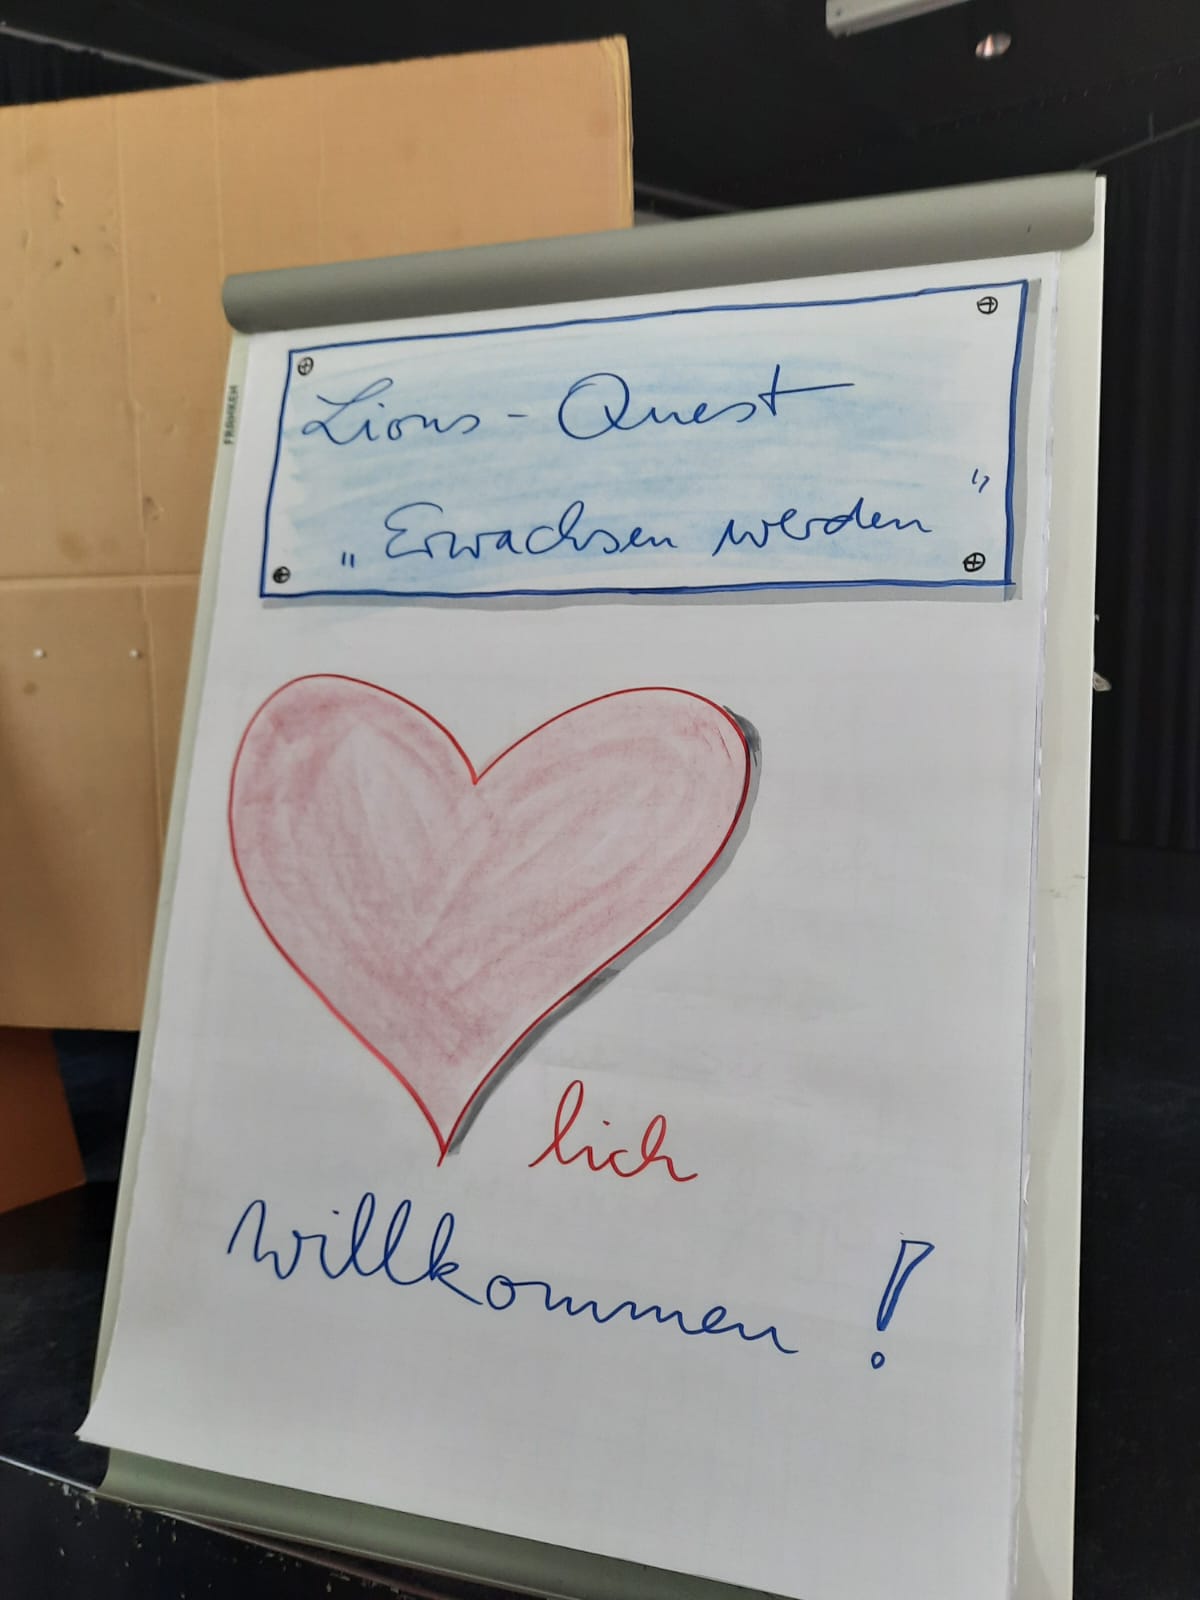 Lions - Quest
„Erwachsen werden"
lich
willkommen!
FRANKEN